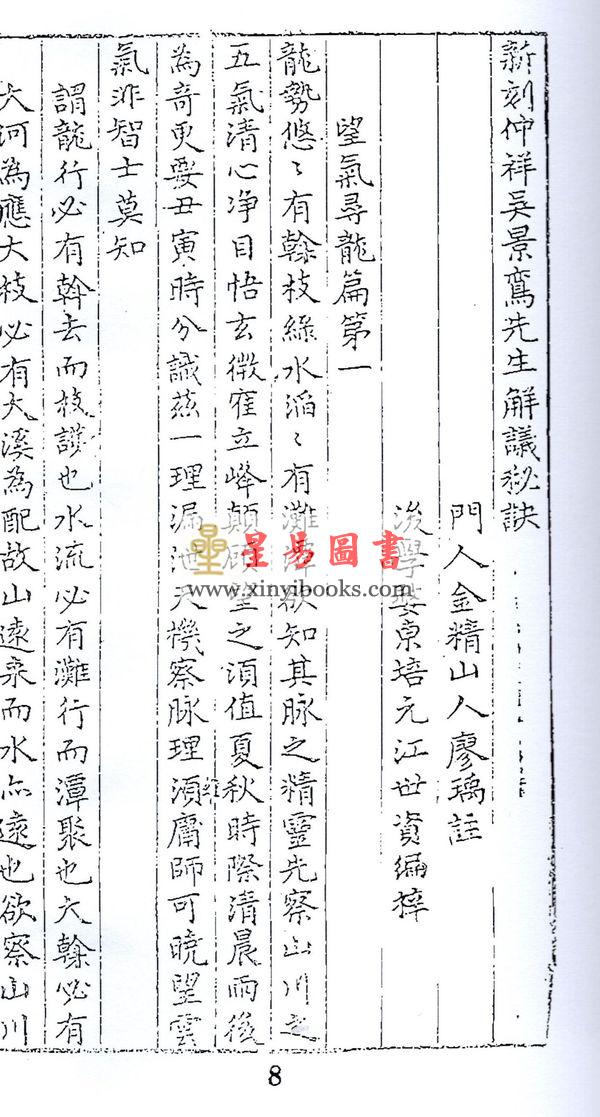 新刻仲祥吳景鸞先生解議秘訣
門人金精山人廖瑀註
後學婺東培元江世資編梓
望氣尋龍篇第一
龍勢悠〻有榦枝綠水滔〻有灘潭欲知其脉之精靈先察山川之
五氣清心淨目悟玄微宿立峰顛碩望之須值夏秋時際清晨雨後
為奇更要丑寅時分識茲一理漏洩天機察脉理須庸師可曉望雲
氣非智士莫知
謂龍行必有榦去而枝護也水流必有灘行而潭聚也大榦必有
大河為應大枝必有大溪為配故山遠來而水亦遠也欲察山川
星易圖書
www.xinyibooks.com
8